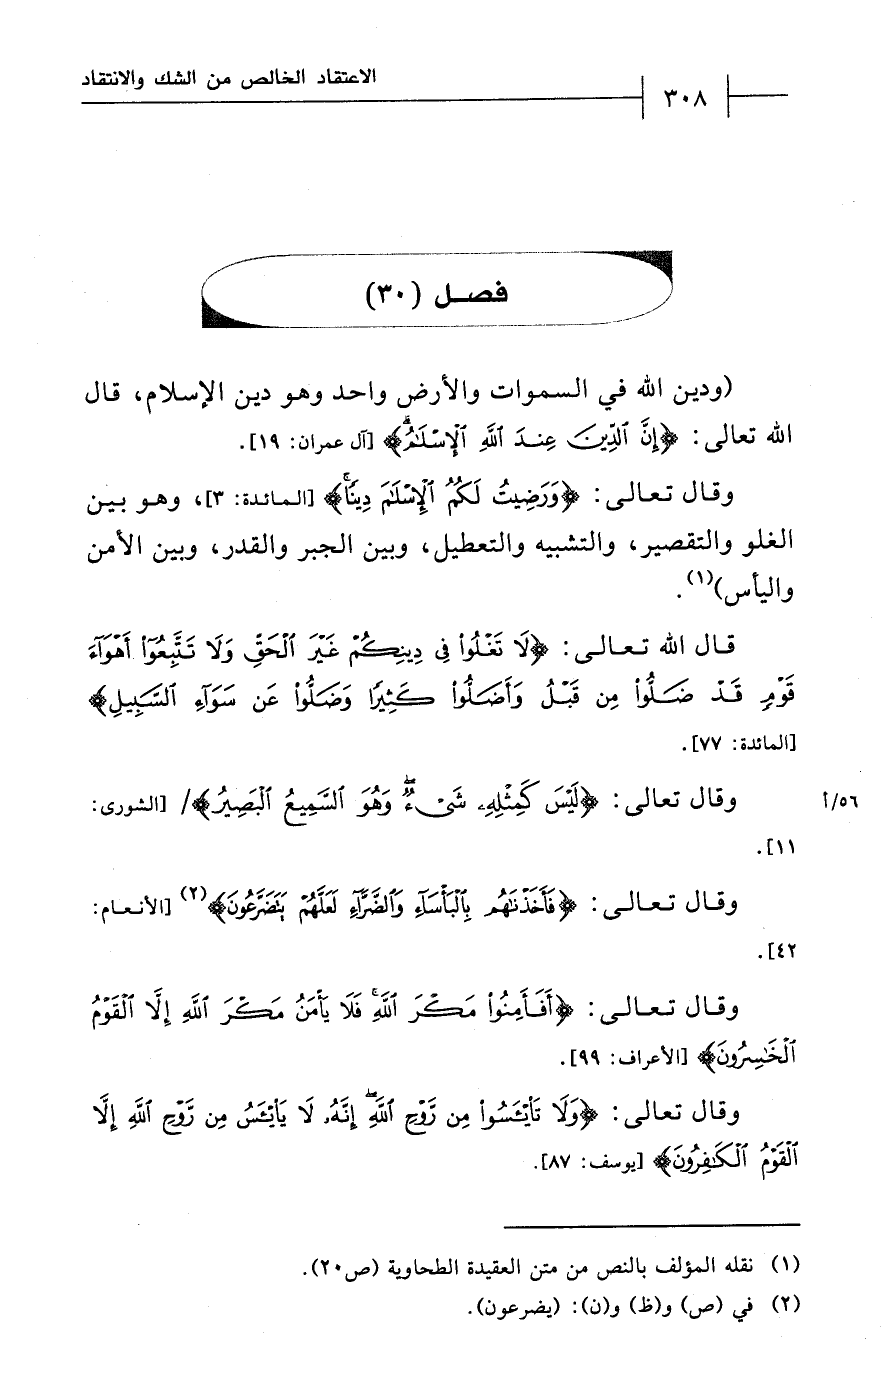 الاعتقاد الخالص من الشك والانتقاد
٣٠٨
فصل (٣٠)
(ودين الله في السموات والأرض واحد وهو دين الإسلام، قال
الله تعالى: ﴿إِنَّ ٱلدِّينَ عِندَ ٱللَّهِ ٱلْإِسْلَـٰمُ ۗ﴾ [آل عمران: ١٩].
وقال تعالى: ﴿وَرَضِيتُ لَكُمُ ٱلْإِسْلَـٰمَ دِينًا ۚ﴾ [المائدة: ٣]، وهو بين
الغلو والتقصير، والتشبيه والتعطيل، وبين الجبر والقدر، وبين الأمن
واليأس)(١).
قال الله تعالى: ﴿لَا تَغْلُوا۟ فِى دِينِكُمْ غَيْرَ ٱلْحَقِّ وَلَا تَتَّبِعُوٓا۟ أَهْوَآءَ
قَوْمٍ قَدْ ضَلُّوا۟ مِن قَبْلُ وَأَضَلُّوا۟ كَثِيرًا وَضَلُّوا۟ عَن سَوَآءِ ٱلسَّبِيلِ﴾
[المائدة: ٧٧].
وقال تعالى: ﴿لَيْسَ كَمِثْلِهِۦ شَىْءٌ ۖ وَهُوَ ٱلسَّمِيعُ ٱلْبَصِيرُ﴾/ [الشورى:
٥٦/أ
١١].
وقال تعالى: ﴿فَأَخَذْنَـٰهُم بِٱلْبَأْسَآءِ وَٱلضَّرَّآءِ لَعَلَّهُمْ يَتَضَرَّعُونَ﴾(٢) [الأنعام:
٤٢].
وقال تعالى: ﴿أَفَأَمِنُوا۟ مَكْرَ ٱللَّهِ ۚ فَلَا يَأْمَنُ مَكْرَ ٱللَّهِ إِلَّا ٱلْقَوْمُ
ٱلْخَـٰسِرُونَ﴾ [الأعراف: ٩٩].
وقال تعالى: ﴿وَلَا تَا۟يْـَٔسُوا۟ مِن رَّوْحِ ٱللَّهِ ۖ إِنَّهُۥ لَا يَا۟يْـَٔسُ مِن رَّوْحِ ٱللَّهِ إِلَّا
ٱلْقَوْمُ ٱلْكَـٰفِرُونَ﴾ [يوسف: ٨٧].
(١) نقله المؤلف بالنص من متن العقيدة الطحاوية (ص٢٠).
(٢) في (ص) و(ظ) و(ن): (يضرعون).